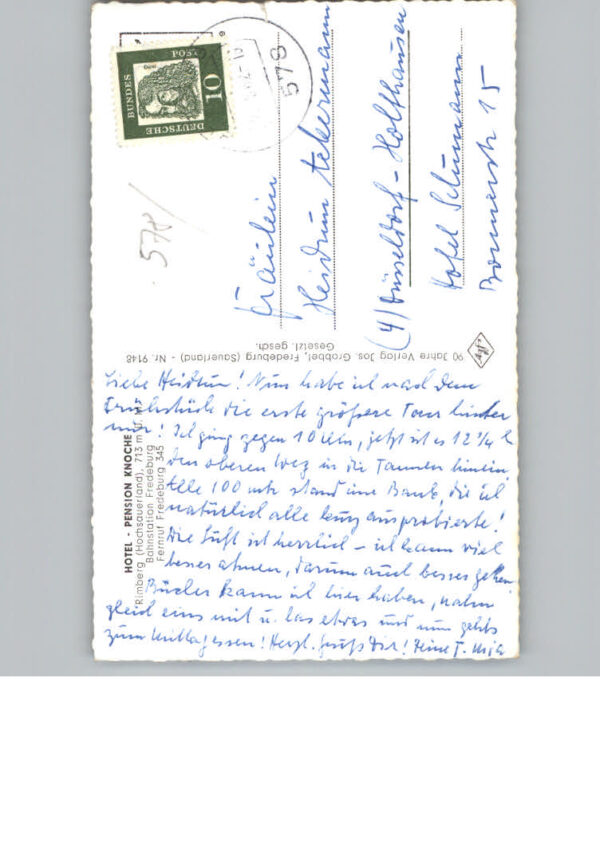 Liebe Heidrun! Nun habe ich nach dem
Frühstück die erste größere Tour hinter
mir! Ich ging gegen 10 Uhr, jetzt ist es 12 1/4 h
den oberen Weg in die Tannen hinein.
Alle 100 mtr stand eine Bank, die ich
natürlich alle kurz ausprobierte!
Die Luft ist herrlich – ich kann viel
besser atmen, darum auch besser gehen.
Bücher kann ich hier haben, nahm
gleich eins mit u. las etwas und nun gehts
zum Mittagessen! Herzl. Gruß Dir! Deine T. Mia
HOTEL - PENSION KNOCHE
Rimberg (Hochsauerland), 713 m ü. M.
Bahnstation Fredeburg
Fernruf Fredeburg 345
90 Jahre Verlag Jos. Grobbel, Fredeburg (Sauerland) - Nr. 9148
Gesetzl. gesch.
Agfa
DEUTSCHE
BUNDES
POST
10
578
578/
Fräulein
Heidrun
(4) Düsseldorf - Holthausen
Hotel Schumann
Bonnerstr 15